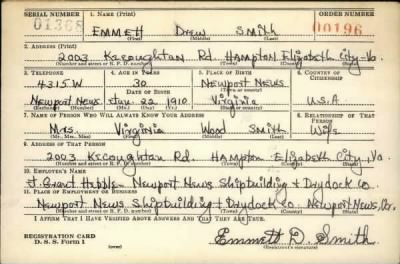 SERIAL NUMBER 1. NAME (Print) ORDER NUMBER
EMMETT Drew Smith 00196
(First) (Middle) (Last)
2. ADDRESS (Print)
2003 Kecoughtan Rd. HAMPTON Elizabeth City Va.
(Number and street or R. F. D. number) (Town) (County) (State)
3. TELEPHONE 4. AGE IN YEARS 5. PLACE OF BIRTH 6. COUNTRY OF CITIZENSHIP
4315W 30 Newport News
(Town or county)
Newport News Jun. 22 1910 Virginia U.S.A
(Exchange) (Number) (Mo.) (Day) (Yr.) (State or country)
7. NAME OF PERSON WHO WILL ALWAYS KNOW YOUR ADDRESS 8. RELATIONSHIP OF THAT PERSON
Mrs Virginia Wood Smith Wife
(Mr., Mrs., Miss) (First) (Middle) (Last)
9. ADDRESS OF THAT PERSON
2003 Kecoughtan Rd. HAMPTON Elizabeth City Va
(Number and street or R. F. D. number) (Town) (County) (State)
10. EMPLOYER'S NAME
Newport News Shipbuilding + Drydock Co.
11. PLACE OF EMPLOYMENT OR BUSINESS
Newport News Shipbuilding + Drydock Co. Newport News, Va.
(Number and street or R. F. D. number) (Town) (County) (State)
I AFFIRM THAT I HAVE VERIFIED ABOVE ANSWERS AND THAT THEY ARE TRUE.
REGISTRATION CARD
D. S. S. Form 1
(over)
Emmett D. Smith
(Registrant's signature)